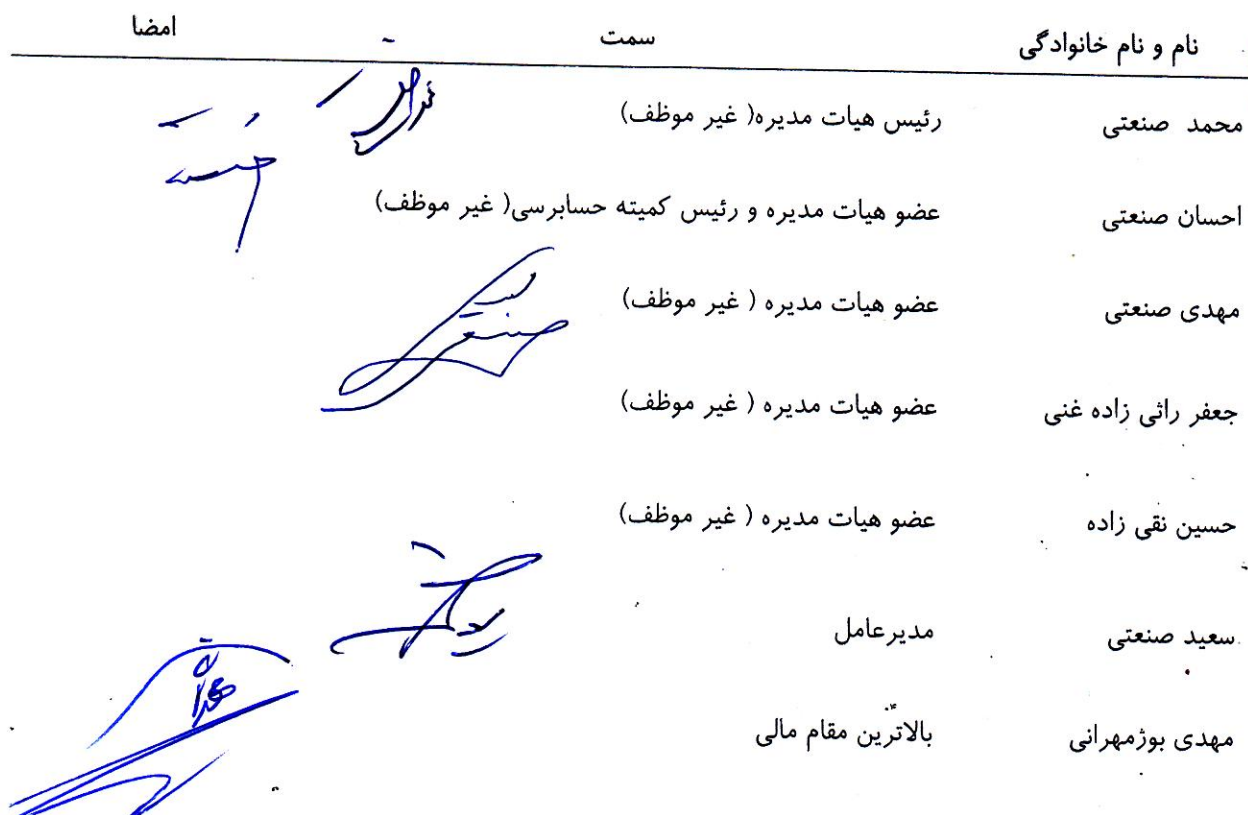 نام و نام خانوادگی سمت امضا
محمد صنعتی رئیس هیات مدیره( غیر موظف)
احسان صنعتی عضو هیات مدیره و رئیس کمیته حسابرسی( غیر موظف)
مهدی صنعتی عضو هیات مدیره ( غیر موظف)
جعفر راثی زاده غنی عضو هیات مدیره ( غیر موظف)
حسین نقی زاده عضو هیات مدیره ( غیر موظف)
سعید صنعتی مدیرعامل
مهدی بوژمهرانی بالاترین مقام مالی